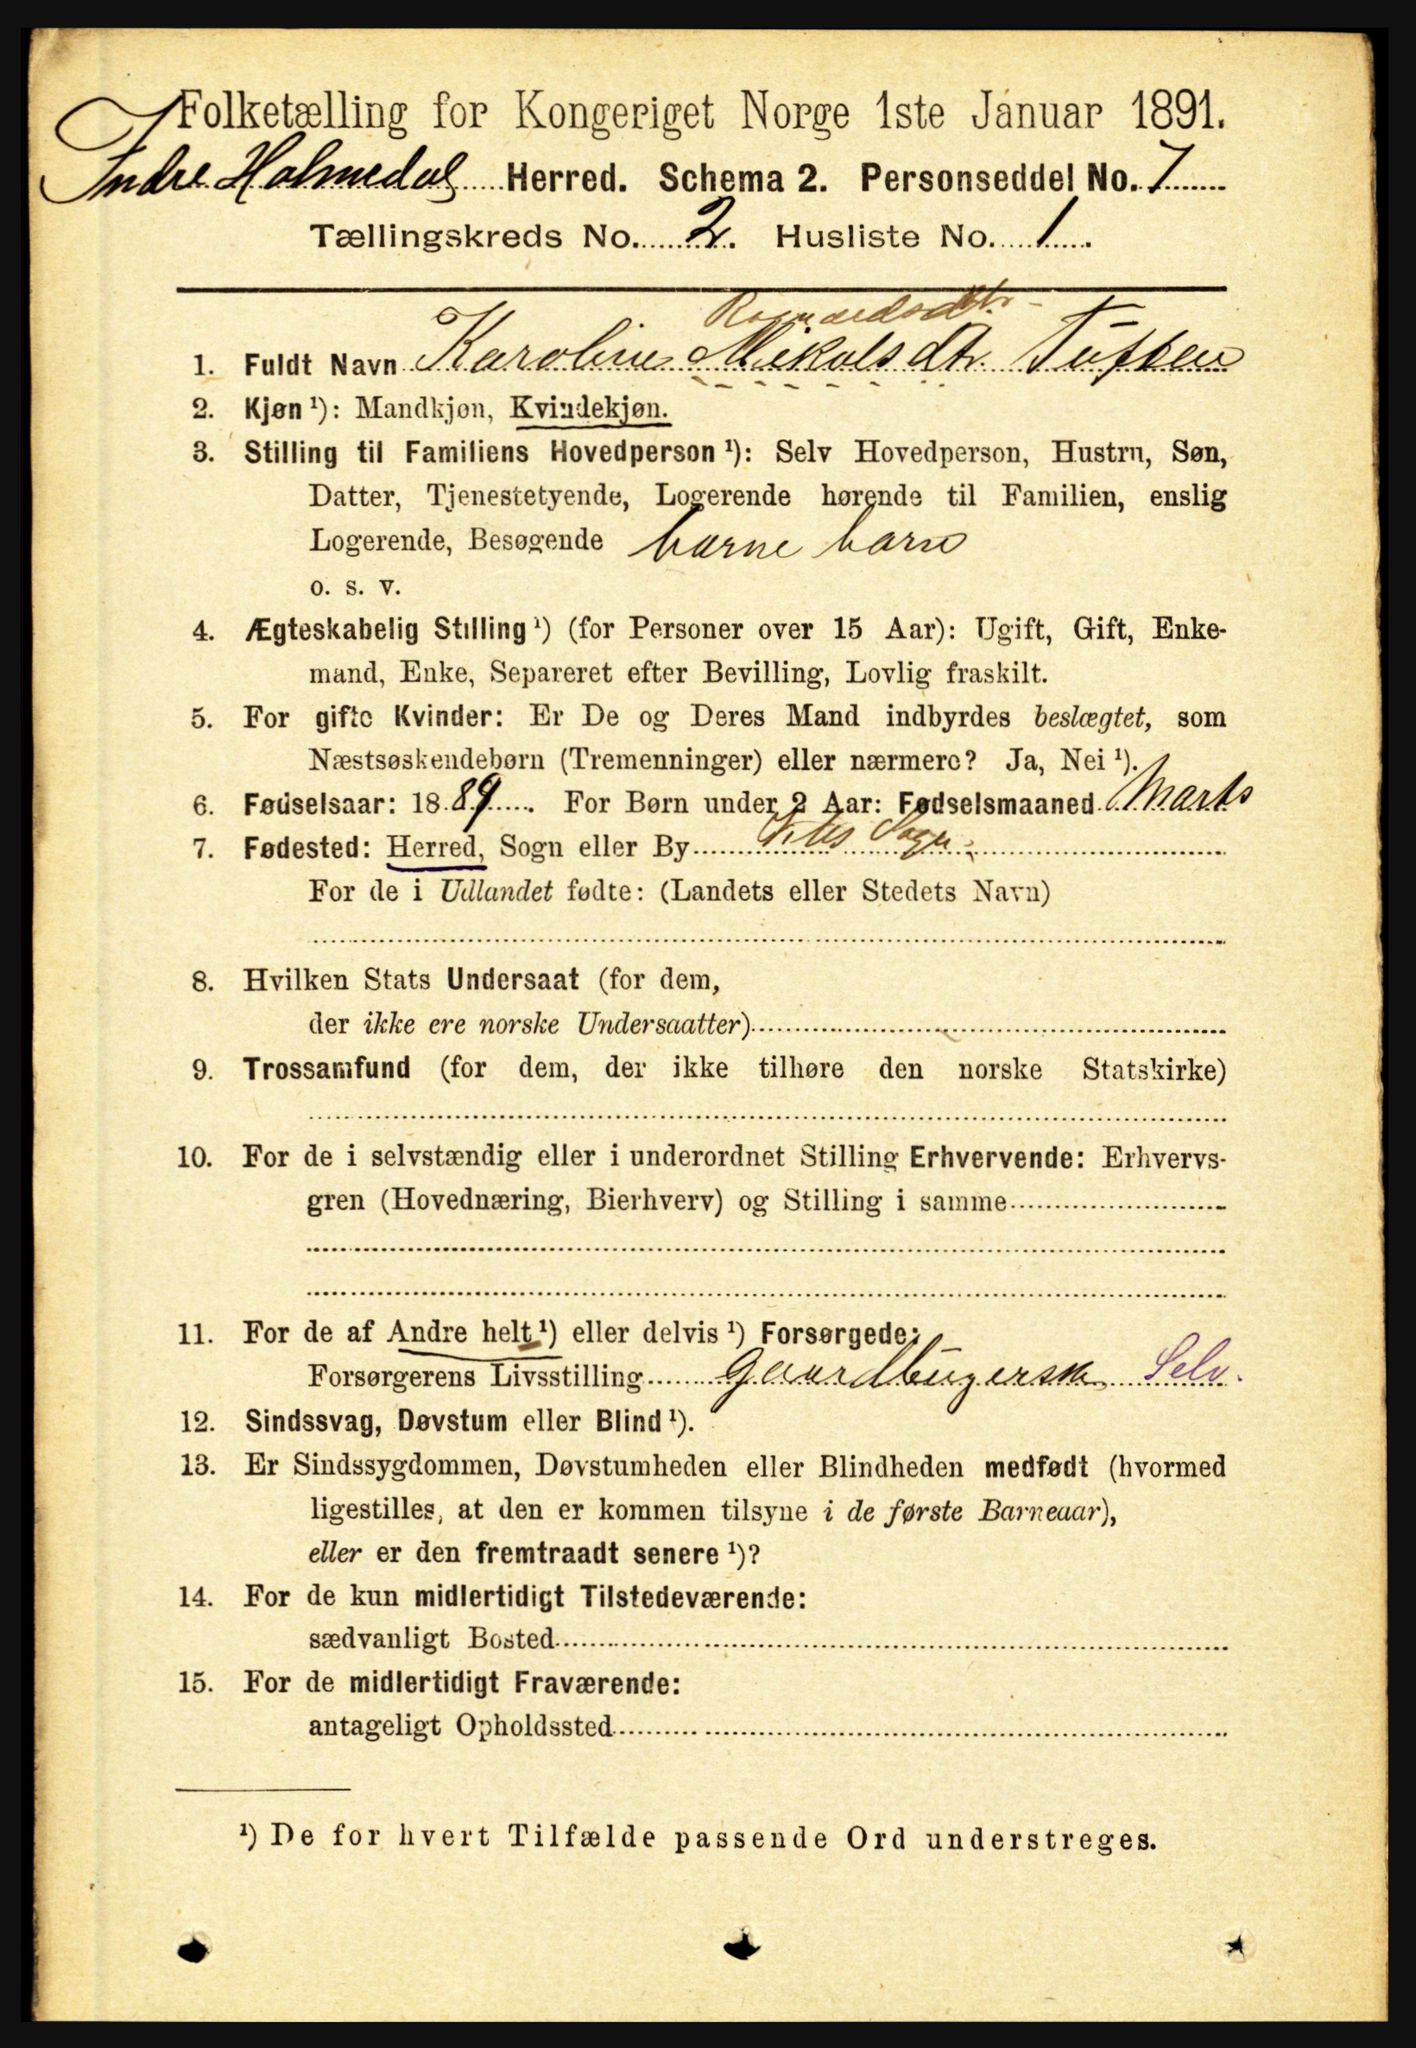 Folketælling for Kongeriget Norge 1ste Januar 1891.
Indre Holmedal Herred. Schema 2. Personseddel No. 7
Tællingskreds No. 2. Husliste No. 1
1. Fuldt Navn Karoline Mikalsdtr. Tuften
2. Kjøn ¹): Mandkjøn, Kvindekjøn.
3. Stilling til Familiens Hovedperson ¹): Selv Hovedperson, Hustru, Søn,
Datter, Tjenestetyende, Logerende hørende til Familien, enslig
Logerende, Besøgende barne barn
o. s. v.
4. Ægteskabelig Stilling ¹) (for Personer over 15 Aar): Ugift, Gift, Enke-
mand, Enke, Separeret efter Bevilling, Lovlig fraskilt.
5. For gifte Kvinder: Er De og Deres Mand indbyrdes beslægtet, som
Næstsøskendebørn (Tremenninger) eller nærmere? Ja, Nei ¹).
6. Fødselsaar: 1889. For Børn under 2 Aar: Fødselsmaaned Marts
7. Fødested: Herred, Sogn eller By Sogn
For de i Udlandet fødte: (Landets eller Stedets Navn)
8. Hvilken Stats Undersaat (for dem,
der ikke ere norske Undersaatter)
9. Trossamfund (for dem, der ikke tilhøre den norske Statskirke)
10. For de i selvstændig eller i underordnet Stilling Erhvervende: Erhvervs-
gren (Hovednæring, Bierhverv) og Stilling i samme
11. For de af Andre helt ¹) eller delvis ¹) Forsørgede:
Forsørgerens Livsstilling Gaardbrugerske Selv.
12. Sindssvag, Døvstum eller Blind ¹).
13. Er Sindssygdommen, Døvstumheden eller Blindheden medfødt (hvormed
ligestilles, at den er kommen tilsyne i de første Barneaar),
eller er den fremtraadt senere ¹)?
14. For de kun midlertidigt Tilstedeværende:
sædvanligt Bosted
15. For de midlertidigt Fraværende:
antageligt Opholdssted
¹) De for hvert Tilfælde passende Ord understreges.